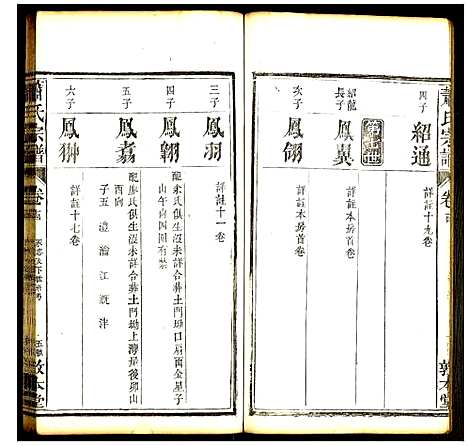 蕭氏宗譜
卷
敦本堂
四子
紹通
詳註十九卷
紹龍
長子
鳳翼
詳註本房首卷
次子
鳳翎
詳註本房首卷
三子
鳳羽
詳註十一卷
四子
鳳翱
配朱氏俱生沒未詳合葬土門坳口扇面金星子
山午向四圍有禁
五子
鳳翥
配康氏俱生沒未詳合葬土門坳上灣屋後卯山
酉向
子五 瀘 瀹 江 溉 洋
六子
鳳翀
詳註十七卷
蕭氏宗譜
卷
敦本堂